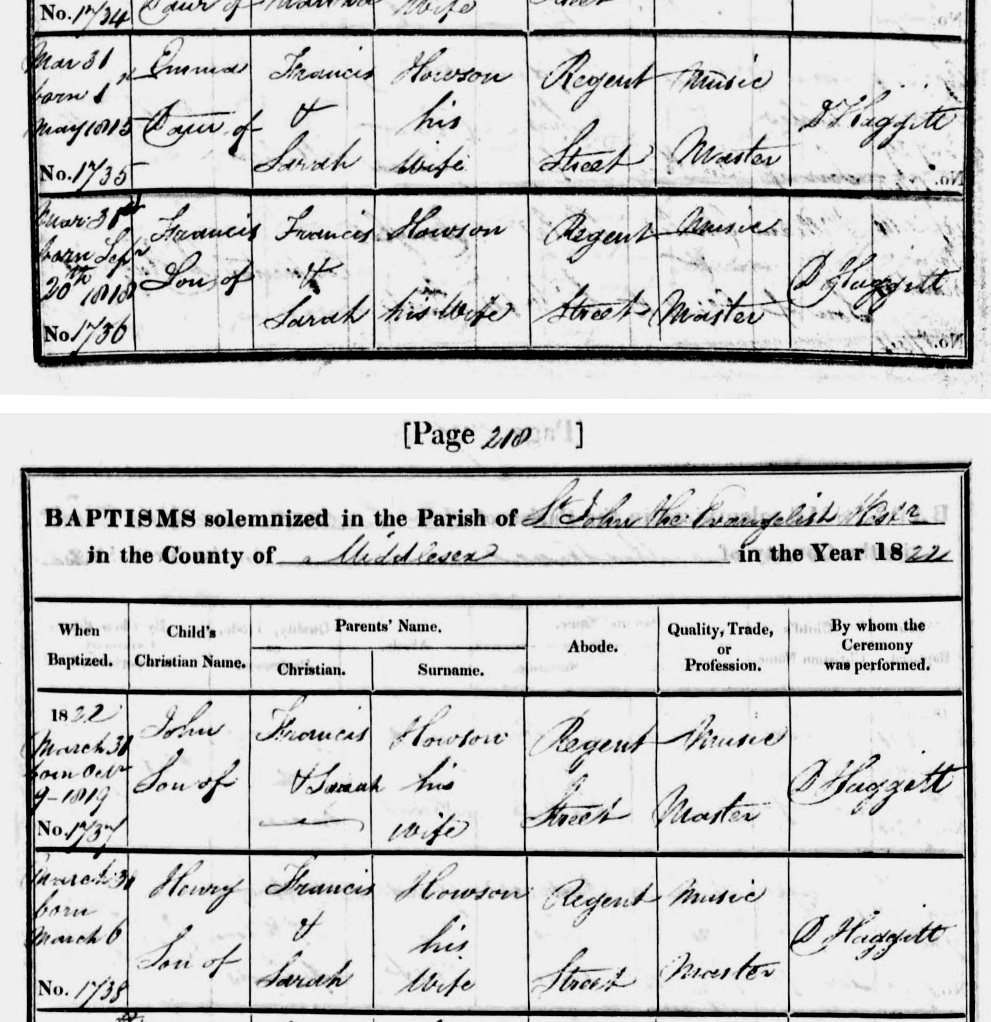 No. 1734 Daur of Martha Wife Street
Mar 31 Emma Francis Howson Regent Music
born 1 & his D Haggitt
May 1815 Daur of Sarah Wife Street Master
No. 1735
Mar: 31st Francis Francis Howson Regent Music
born Sepr Son of & D Haggitt
20th 1818 Sarah his Wife Street Master
No. 1736
[Page 218 ]
BAPTISMS solemnized in the Parish of St John the Evangelist Westr
in the County of Middlesex in the Year 1822
When Child's Parents' Name. Abode. Quality, Trade, By whom the
Baptized. Christian Name. Christian. Surname. or Ceremony
Profession. was performed.
1822 John Francis Howson Regent Music
March 31 Son of & Sarah his D Haggitt
born Octr
9-1819 wife Street Master
No. 1737
March 31 Henry Francis Howson Regent Music
born & his D Haggitt
March 6 Son of Sarah Wife Street Master
No. 1738